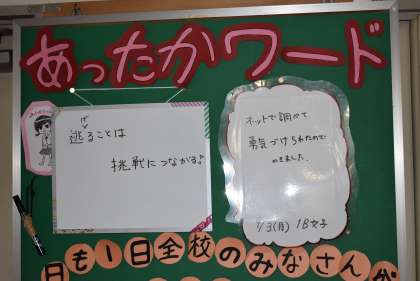 あったかワード
逃げることは
挑戦につながる。
ネットで調べて
勇気づけられたので
かきました。
7/3(月) 1B女子
日も1日全校のみなさんが